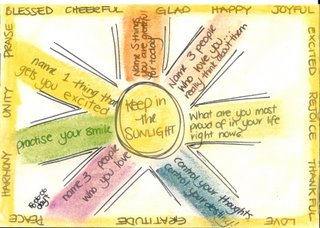 BLESSED CHEERFUL GLAD HAPPY JOYFUL
EXCITED REJOICE THANKFUL
LOVE
GRATITUDE
PEACE
HARMONY UNITY PRAISE
Name 5 things
you are grateful
for today
Name 3 people
who love you...
really think about them
What are you most
proud of in your life
right now?
control your thoughts
name 3 people
who you love
practise your smile
name 1 thing that
gets you excited
Keep in
the
SUNLIGHT